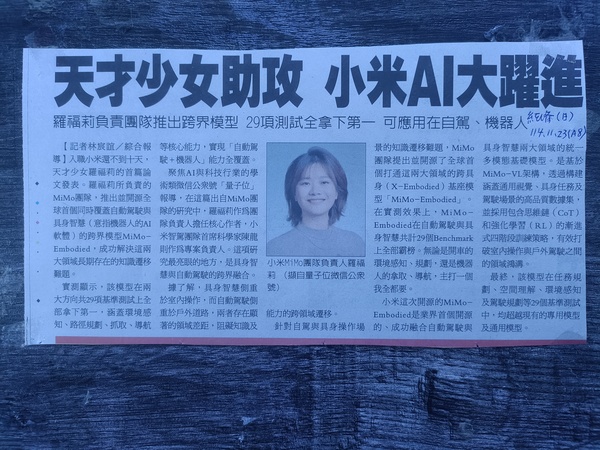 天才少女助攻 小米AI大躍進
羅福莉負責團隊推出跨界模型 29項測試全拿下第一 可應用在自駕、機器人
經濟(日)
114.11.23(A8)
【記者林宸誼／綜合報
導】入職小米還不到十天，
天才少女羅福莉的首篇論
文發表。羅福莉所負責的
MiMo團隊，推出並開源全
球首個同時覆蓋自動駕駛與
具身智慧（意指機器人的AI
軟體）的跨界模型MiMo-
Embodied，成功解決這兩
大領域長期存在的知識遷移
難題。
實測顯示，該模型在兩
大方向共29項基準測試上全
部拿下第一，涵蓋環境感
知、路徑規劃、抓取、導航
等核心能力，實現「自動駕
駛+機器人」能力全覆蓋。
聚焦AI與科技行業的學
術類微信公眾號「量子位」
報導，在這篇出自MiMo團
隊的研究中，羅福莉作為團
隊負責人擔任核心作者，小
米智駕團隊首席科學家陳龍
則作為專案負責人。這項研
究最亮眼的地方，是具身智
慧與自動駕駛的跨界融合。
據了解，具身智慧側重
於室內操作，而自動駕駛側
重於戶外道路，兩者存在顯
著的領域差距，阻礙知識及
小米MiMo團隊負責人羅福
莉（擷自量子位微信公眾
號）
能力的跨領域遷移。
針對自駕與具身操作場
景的知識遷移難題，MiMo
團隊提出並開源了全球首
個打通這兩大領域的跨具
身（X-Embodied）基座模
型「MiMo-Embodied」。
在實測效果上，MiMo-
Embodied在自動駕駛與具
身智慧共計29個Benchmark
上全部霸榜。無論是開車的
環境感知、規劃，還是機器
人的拿取、導航，主打一個
我全都要。
小米這次開源的MiMo-
Embodied是業界首個開源
的、成功融合自動駕駛與
具身智慧兩大領域的統一
多模態基礎模型。是基於
MiMo-VL架構，透過構建
涵蓋通用視覺、具身任務及
駕駛場景的高品質數據集，
並採用包含思維鏈（CoT）
和強化學習（RL）的漸進
式四階段訓練策略，有效打
破室內操作與戶外駕駛之間
的領域鴻溝。
最終，該模型在任務規
劃、空間理解、環境感知
及駕駛規劃等29個基準測試
中，均超越現有的專用模型
及通用模型。